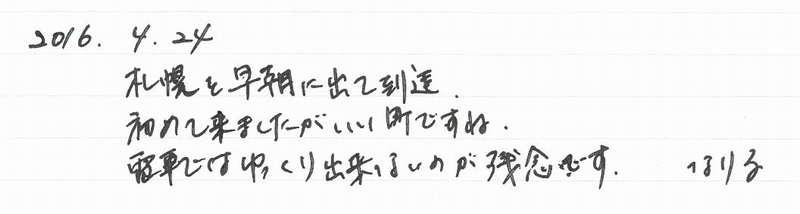 2016. 4. 24
札幌を早朝に出て到達.
初めて来ましたがいい町ですね.
電車ではゆっくり出来ないのが残念です.